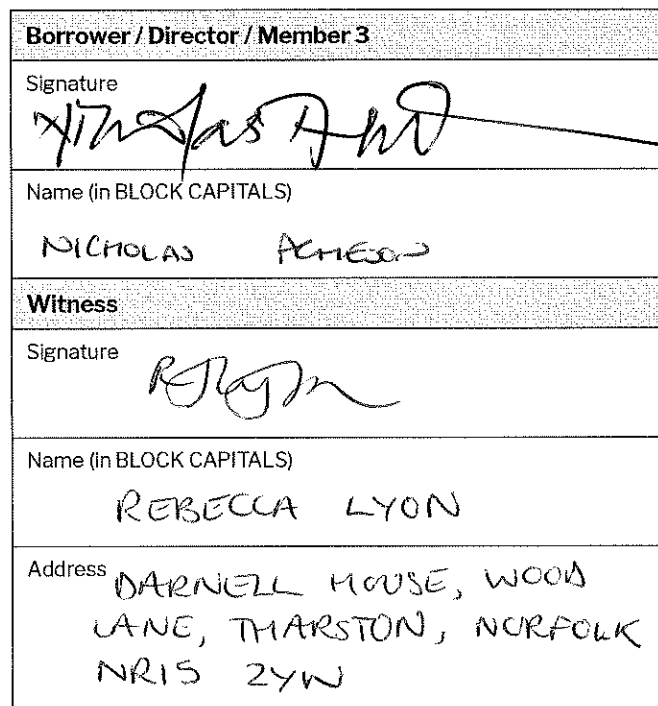 Borrower / Director / Member 3
Signature
Name (in BLOCK CAPITALS)
NICHOLAS ACHESON
Witness
Signature
Name (in BLOCK CAPITALS)
REBECCA LYON
Address DARNELL HOUSE, WOOD
LANE, THARSTON, NORFOLK
NR15 2YW